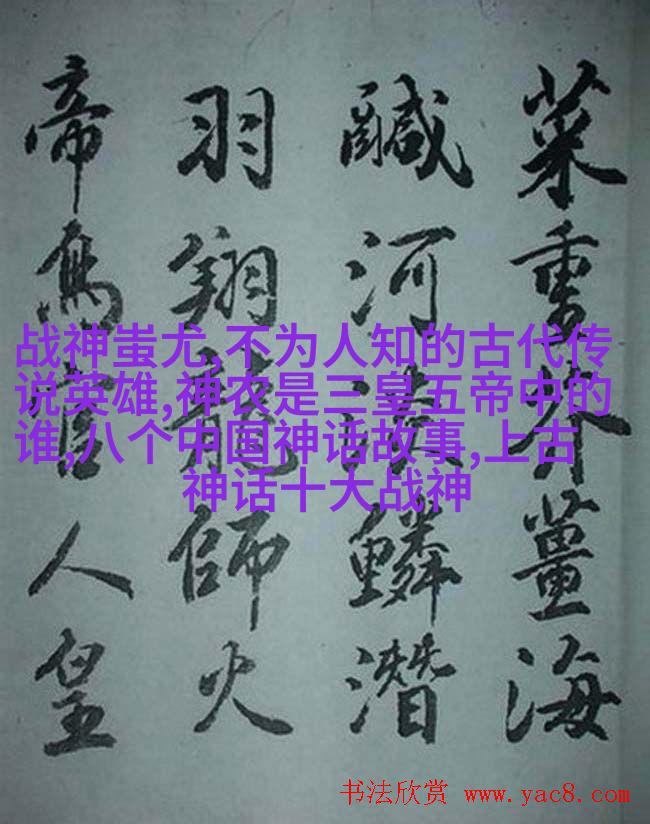 菜重芥薑海
鹹河淡鱗潛
羽翔龍師火
帝鳥官人皇
战神蚩尤,不为人知的古代传
说英雄,神农是三皇五帝中的
谁,八个中国神话故事,上古
神话十大战神
书法欣赏 www.yac8.com